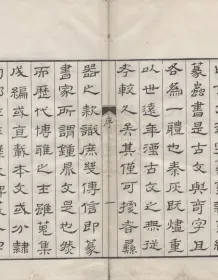 篆蟲書是古文與奇字且
各為一體也秦灰既燼重
以世遠年湮古文之
較久矣其僅可據者彝
序
一
器之款識庶幾傳信即篆
書家所謂鐘鼎文是也然
而歷代博雅之士雖蒐集
成編或直載本文或分隸